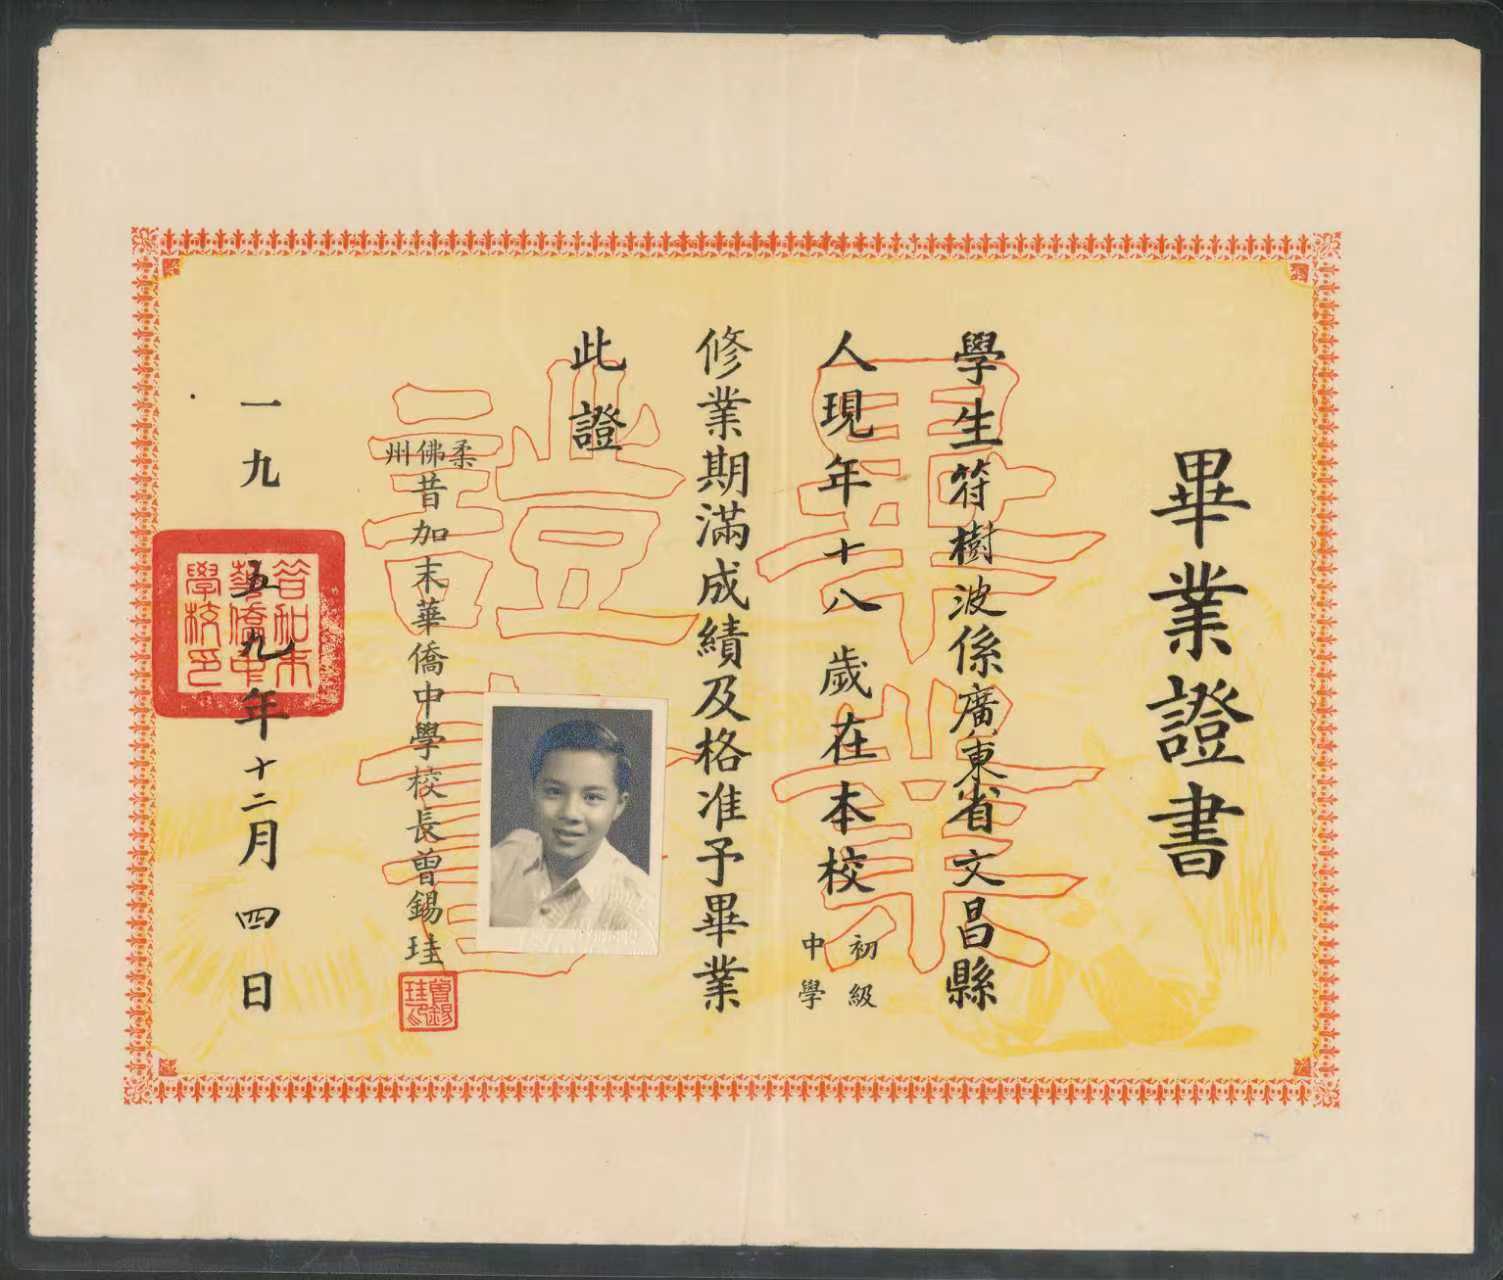 畢業證書
學生符樹波係廣東省文昌縣
人現年十八歲在本校初級中學
修業期滿成績及格准予畢業
此證
柔佛州昔加末華僑中學校長曾錫珪
曾錫珪印
一九五九年十二月四日
昔加末華僑中學校印
畢業證書